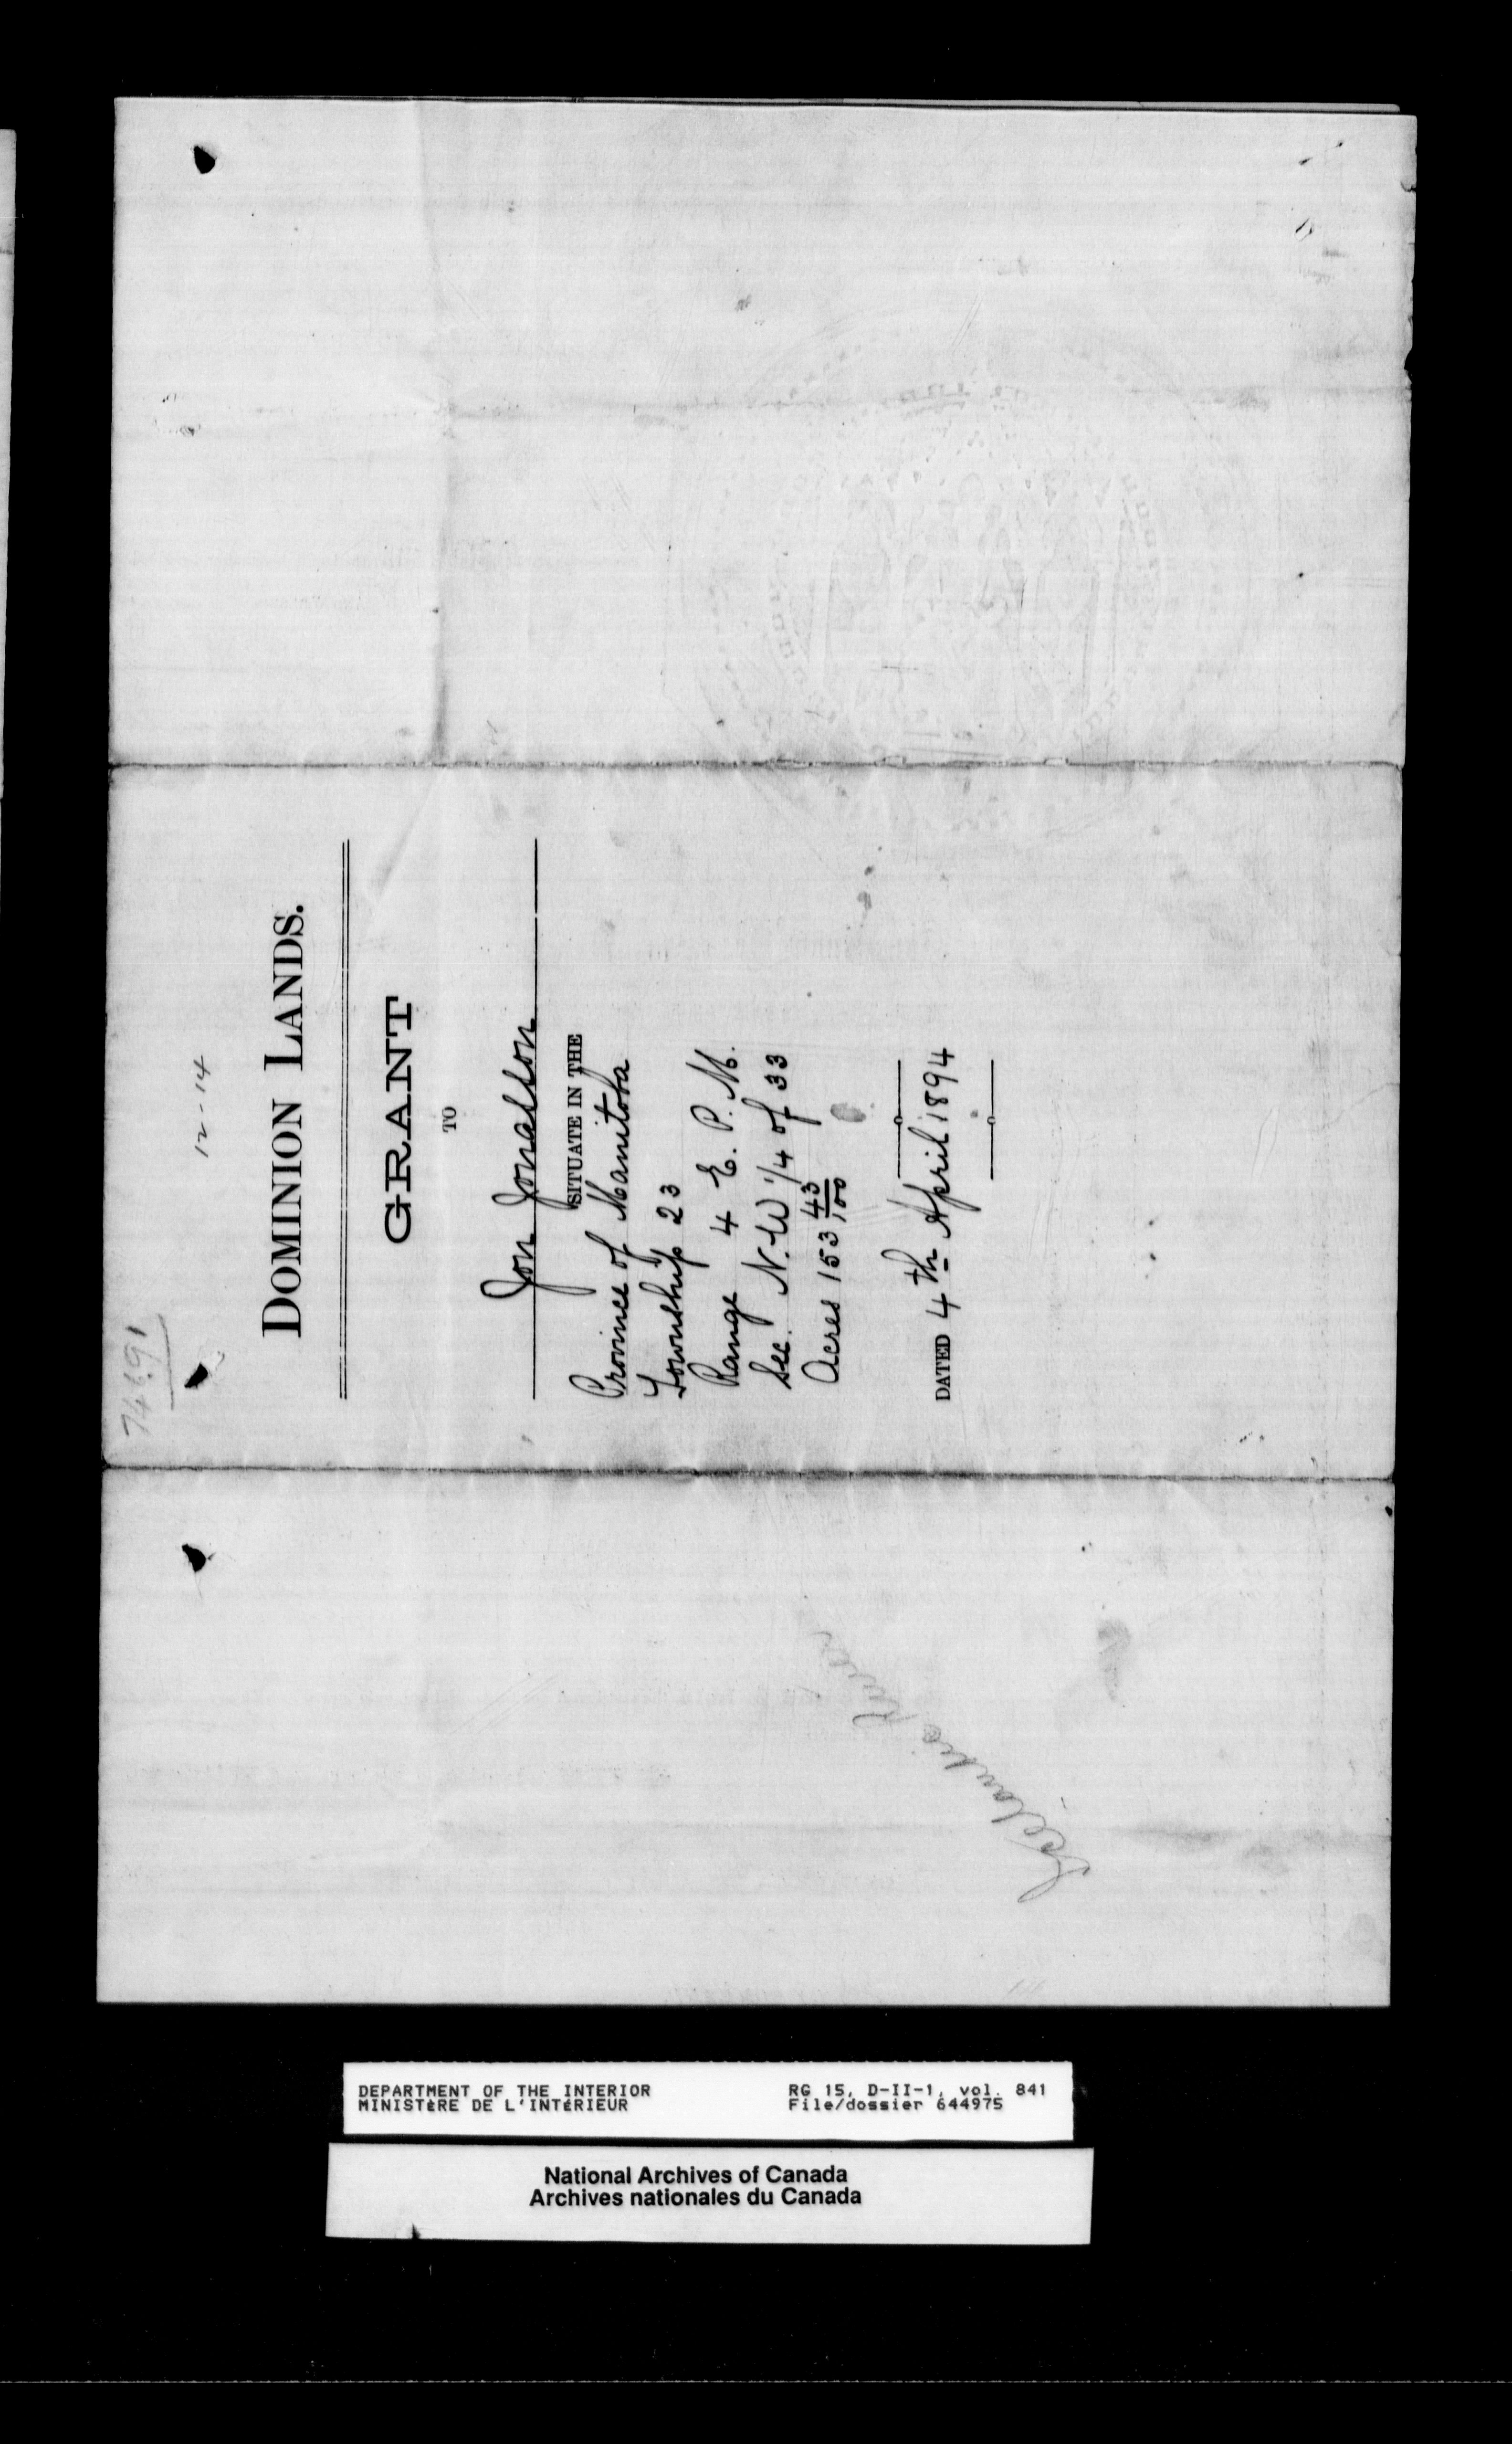 74691
12-14
DOMINION LANDS.
GRANT
TO
Jon Jonasson
SITUATE IN THE
Province of Manitoba
Township 23
Range 4 E. P. M.
Sec. N.W 1/4 of 33
Acres 153 43/100
DATED 4th April 1894
Icelandic River
DEPARTMENT OF THE INTERIOR
MINISTÈRE DE L'INTÉRIEUR
RG 15, D-II-1, vol. 841
File/dossier 644975
National Archives of Canada
Archives nationales du Canada